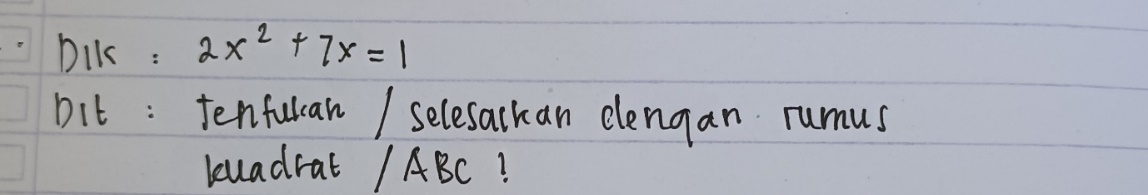 Dik : 2x² + 7x = 1
Dit : tentukan / selesaikan dengan rumus
kuadrat / ABC !